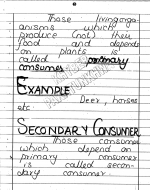 Those living orga-
anisms which
produce (not) their
food and depends
on plants is
called primary
consumer
EXAMPLE
Deer, horses
etc
SECONDARY CONSUMER
Those consumer
which depend on
primary consumer
is called secon-
dary consumer